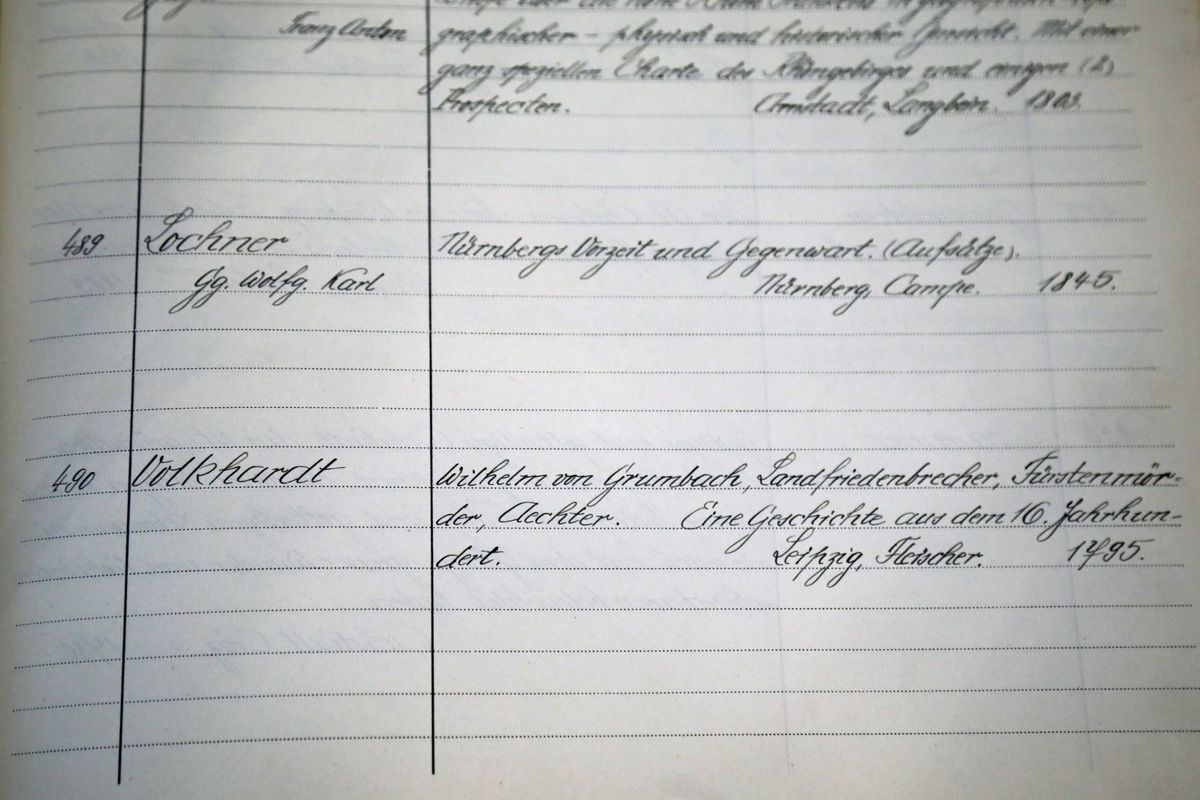 über die hohe Rhöne Frankens in geographisch-topo-
Franz Anton graphischer - physisch und historischer Hinsicht. Mit einer
ganz speziellen Charte des Rhöngebirges und einigen (2)
Prospecten. Arnstadt, Langbein. 1803.
489 Lochner Nürnbergs Vorzeit und Gegenwart. (Aufsätze).
Gg. Wolfg. Karl Nürnberg, Campe. 1845.
490 Volkhardt Wilhelm von Grumbach, Landfriedenbrecher, Fürstenmör-
der, Aechter. Eine Geschichte aus dem 16. Jahrhun-
dert. Leipzig, Fleischer. 1795.